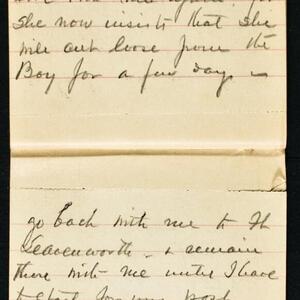 She now insists that she
will cut loose from the
Boy for a few days &
go back with me to Ft
Leavenworth & remain
there with me until I have
to start for my post